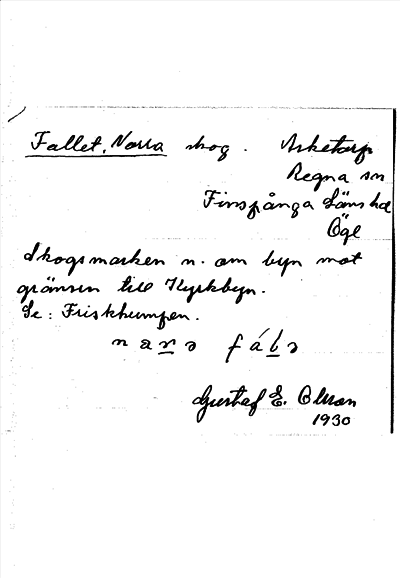 Fallet, Norra skog. Asketorp
Regna sn
Finspånga Läns hd
Ögl
Skogsmarken n. om byn mot
gränsen till Kyrkbyn.
Se: Friskhumpen.
Gustaf E. Olsson
1930